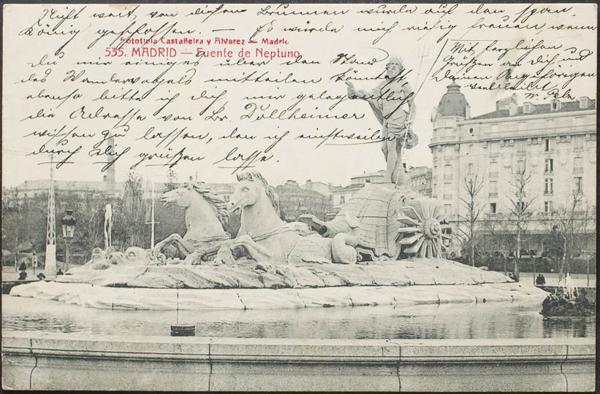 Nicht weit von diesem Brunnen wurde auf den span.
König geschossen. — Es würde mich riesig freuen wenn
Fototipia Castañeira y Alvarez — Madrid
535. MADRID — Fuente de Neptuno.
du mir einiges über den Stand
des Wandervogels mitteilen könntest
ebenso bitte ich dich mir gelegentlich
die Adresse von Br. Dollheimer
wissen zu lassen, den ich einstweilen
durch dich grüßen lasse.
Mit herzlichen
Grüßen an dich und
Deinen Angehörigen
verbleibt